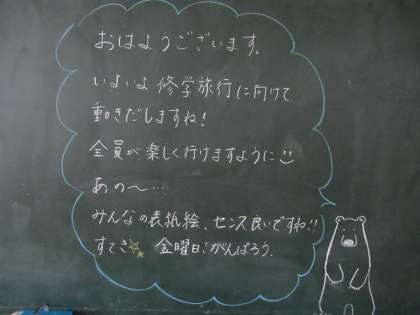 おはようございます。
いよいよ修学旅行に向けて
動きだしますね!
全員が楽しく行けますように
あの～…
みんなの表紙絵、センス良いですね!!
すてき 金曜日!がんばろう。